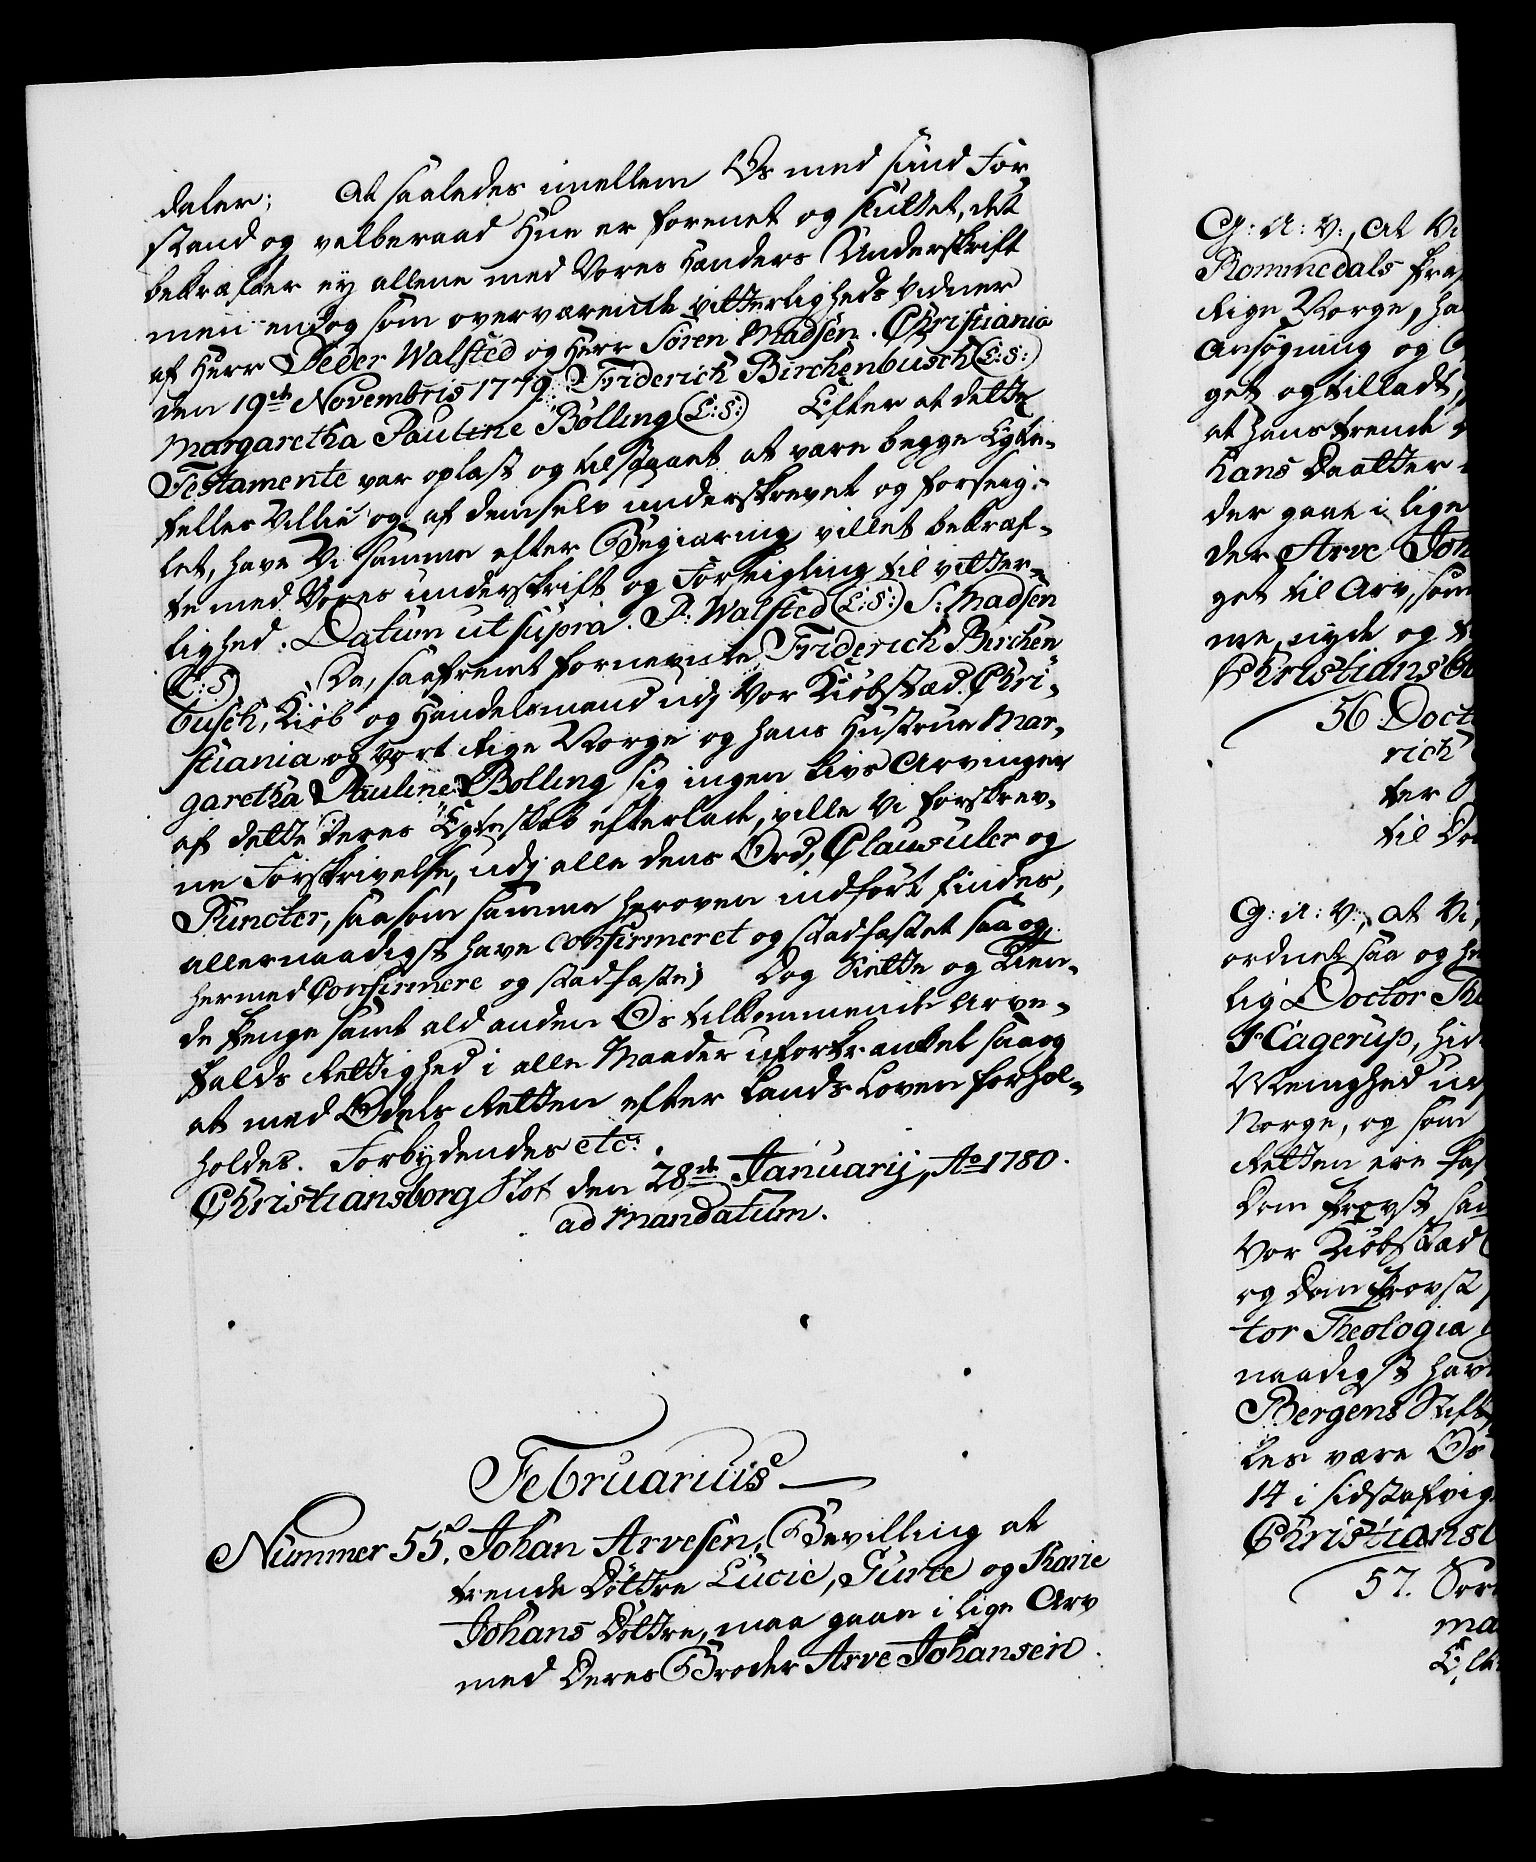 daler; At saaledes imellem Os med sund For-
stand og velberaad Hue er foreenet og sluttet, det
bekræfter ej allene med Vores Hænders Underskrift
men endog som overværende vitterligheds Vidner
af Herr Peder Walsted og Herr Søren Madsen. Christiania
den 19de Novembris 1779. Friderich Birchenbusch (L:S:)
Margaretha Pauline Bolling (L:S:) Efter at dette
Testamente var oplæst og tilstaaet at være begge Egte-
fellers Villie og af dem selv underskrevet og forseig-
let, have Vi samme efter Begiæring villet bekræf-
te med Vores underskrift og Forseigling til vitter-
lighed. Datum ut supra. P: Walsted (L:S:) S: Madsen
(L:S) Da, saafremt fornevnte Friderich Birchen-
busch, Kiøb og Handelsmand udj Vor Kiøbstæd Chri-
stiania og Vort Rige Norge og hans Hustrue Mar-
garetha Pauline Bolling sig ingen Livs Arvinger
af dette deres Egteskab efterlade, ville Vi forskrev-
ne Forskrivelse, udj alle dens Ord, Clausuler og
Puncter, saasom samme heroven indført findes,
allernaadigst have confirmeret og stadfæstet saa og
hermed Confirmere og stadfæste; Dog Siette og Tien-
de Penge samt ald anden Os tilkommende Arve-
falds Rettighed i alle Maader uforkrænket saa og
at med Odels Retten efter Lands Loven forhol-
holdes. Forbydendes etc:
Christiansborg Slot den 28de Januarij, Ao 1780.
ad Mandatum.
Februarius
Nummer 55. Johan Arvesen, Bevilling at
trende Døttre Lucie, Gurte og Karie
Johans Døttre, maa gaae i lige Arv
med Deres Broder Arve Johansen.
G: A: V:, At Vi
Rommedals Præ
Rige Norge, ha
Ansøgning og
get og tilladt,
at hans trende
hans Daatter
der gaae i lige
der Arve Joh
get til Arv, som
me, nyde og
Christiansbo
56. Doct
rich
ter
til Do
G: A: V:, At Vi,
ordnet saa og he
lig Doctor The
Hagerup, hid
Meenighed ud
Norge, og som
Retten ere fas
Dom Provst sam
Vor Kiøbstæd
og Dom Provst
tor Theologia
naadigst hav
Bergens Stift
les være Os
14 i sidstafvig
Christiansb
57. Sør
ma